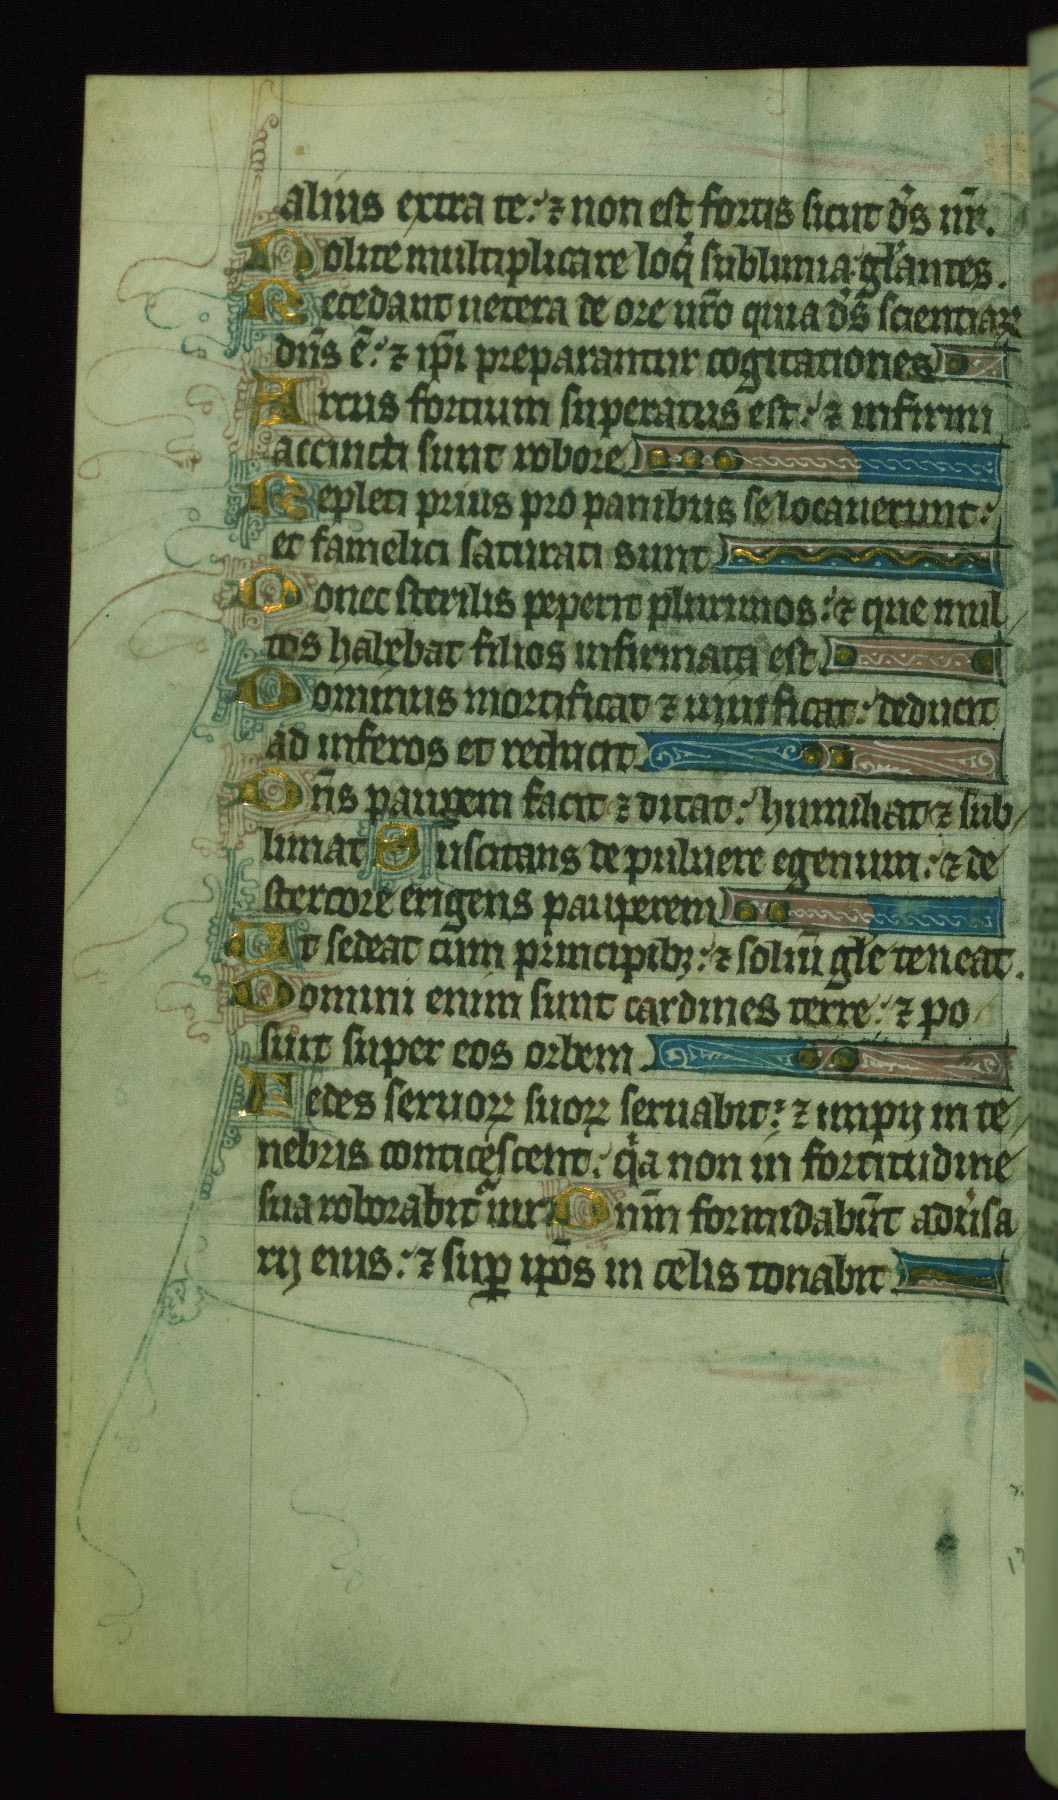 alius extra te: ⁊ non est fortis sicut dš nr̄.
Nolite multiplicare loqͥ sublimia gl̄antes.
Recedant uetera de ore ur̄o quia ds̄ scientiaꝝ
dn̄s ē: ⁊ ip̄i preparantur cogitationes
Arcus fortium superatus est: ⁊ infirmi
accincti sunt robore
Repleti prius pro panibus se locauerunt:
et famelici saturati sunt
Donec sterilis peperit plurimos: ⁊ que mul
tos habebat filios infirmata est
Dominus mortificat ⁊ uiuificat: deducit
ad inferos et reducit
Dn̄s pauperem facit ⁊ ditat: humiliat ⁊ sub
limat Suscitans de puluere egenum: ⁊ de
stercore erigens pauperem
Ut sedeat cum principibꝫ: ⁊ soliū gl̄e teneat.
Domini enim sunt cardines terre: ⁊ po
suit super eos orbem
Pedes seruoꝝ suoꝝ seruabit: ⁊ impij in te
nebris conticescent: qͥa non in fortitudine
sua roborabitᷣ uir Dn̄m formidabūt adu̓sa
rij eius: ⁊ suꝑ ip̄os in celis tonabit